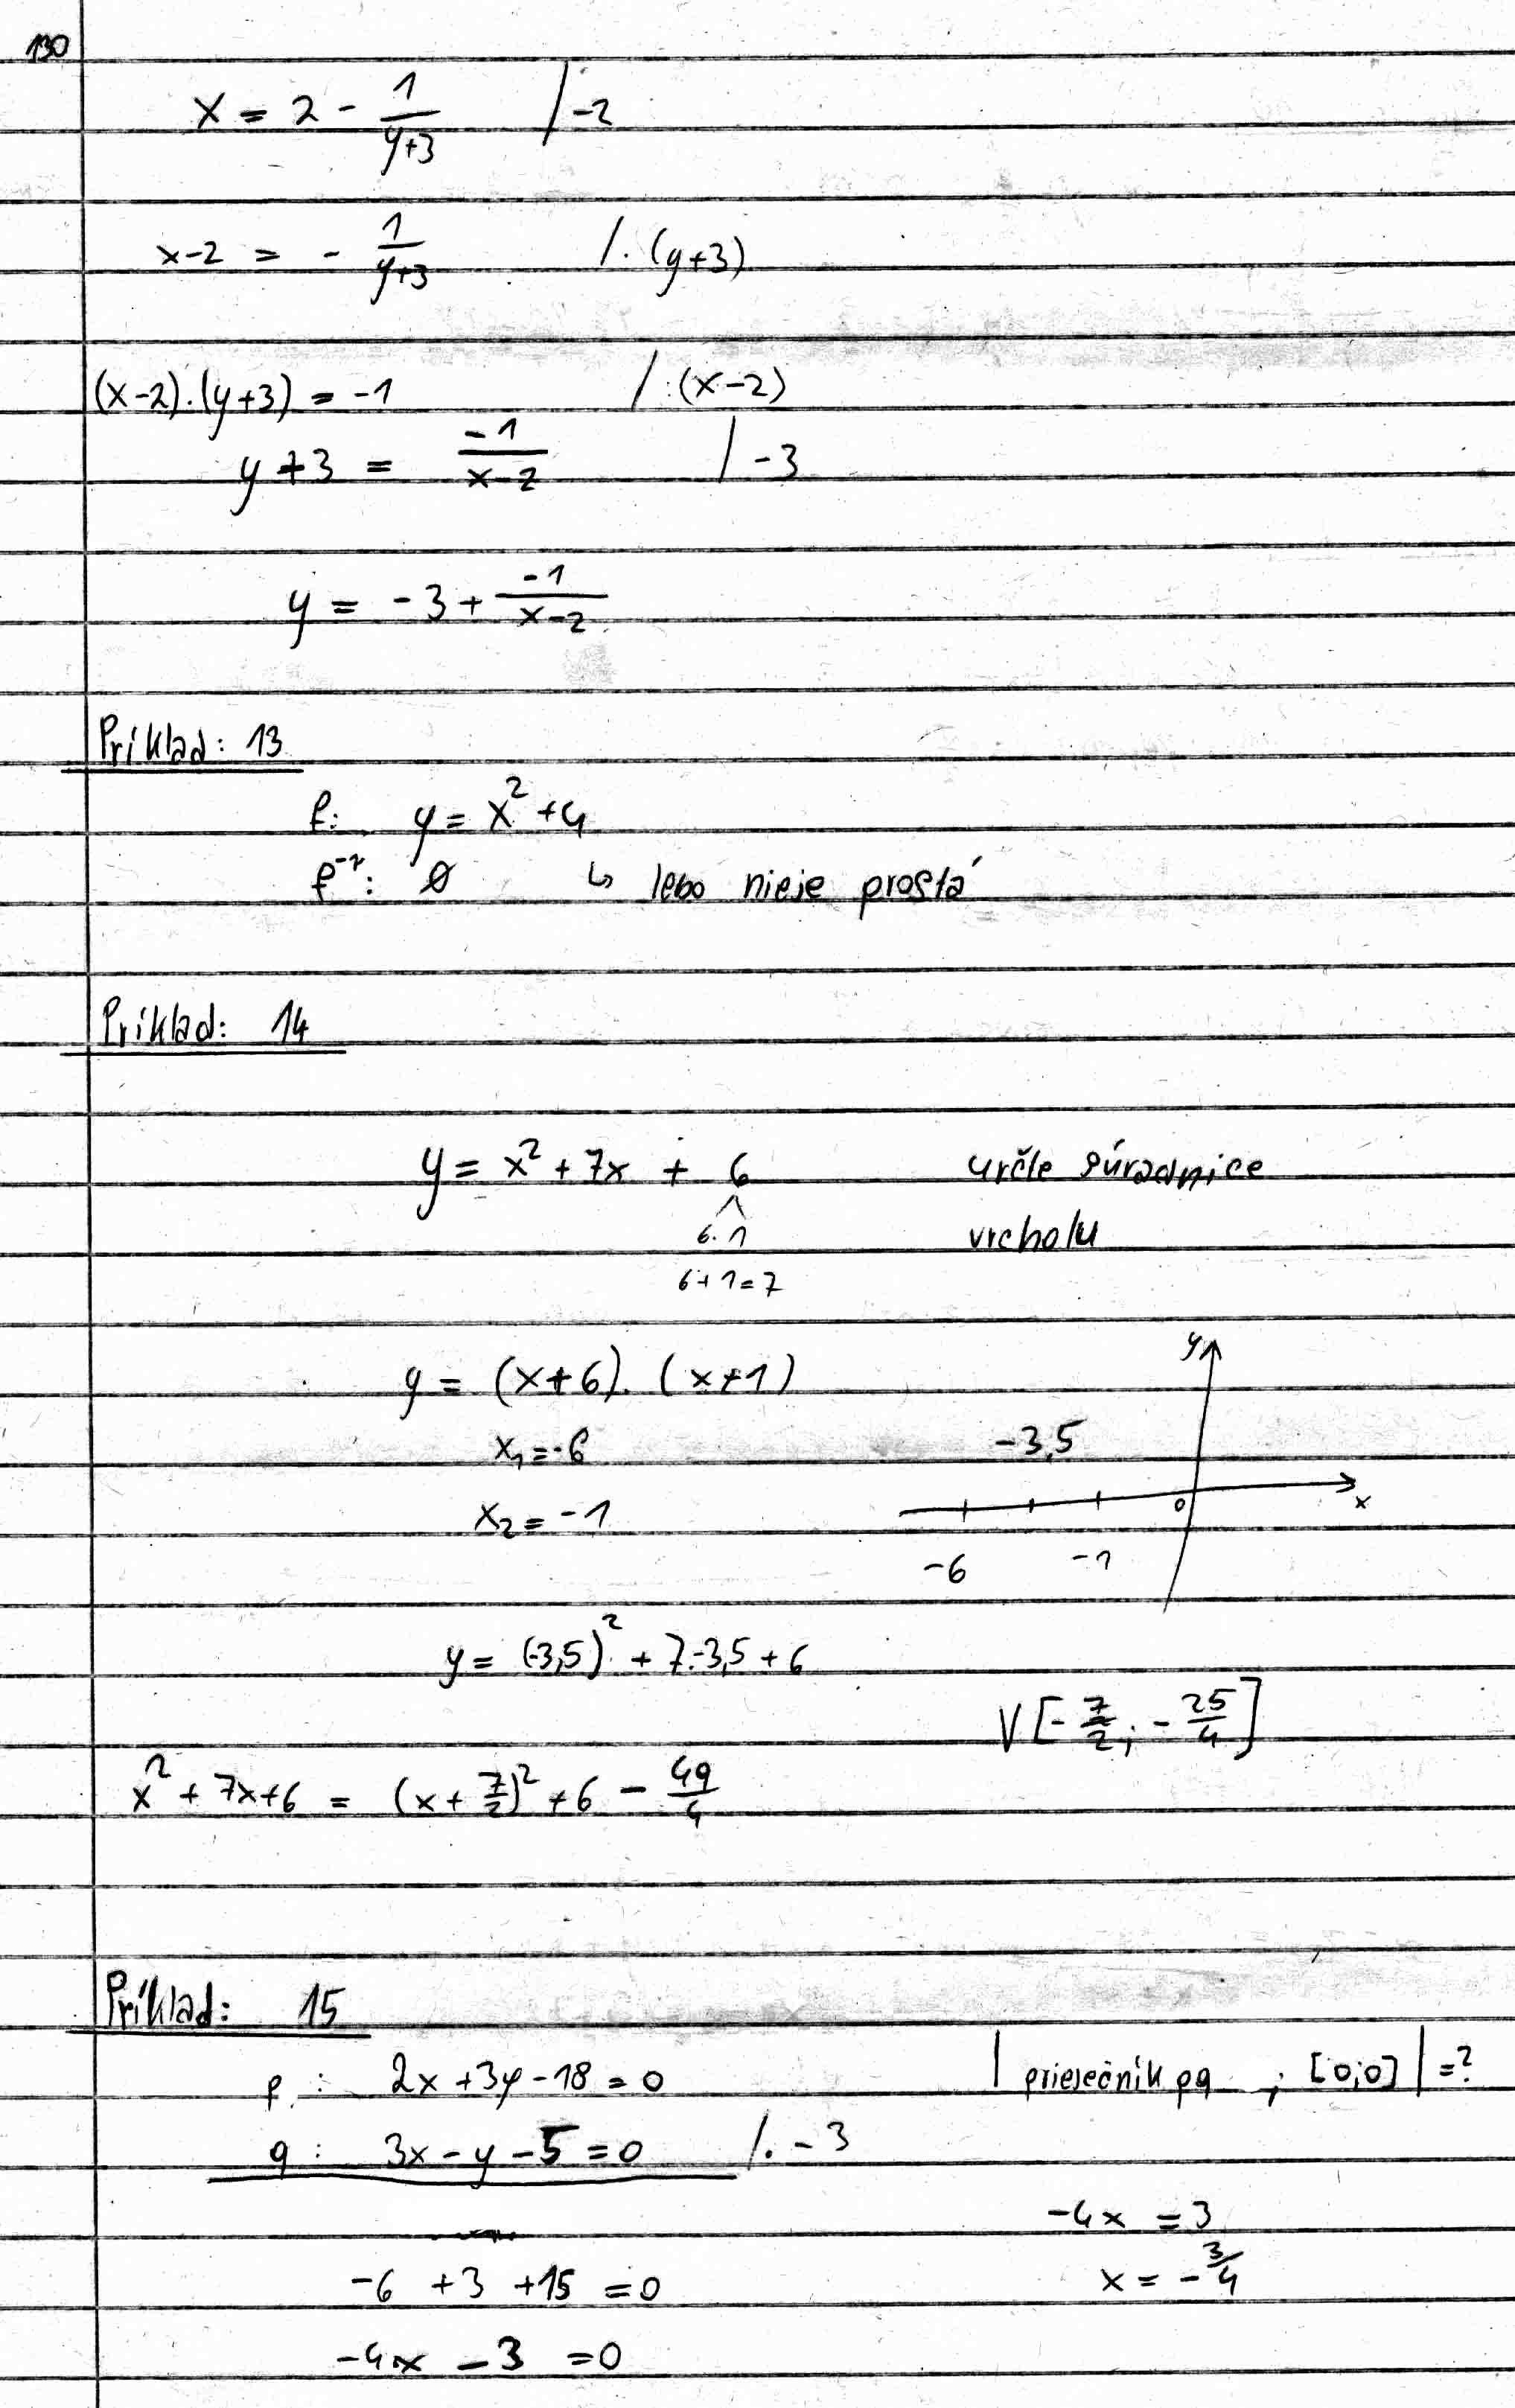 130
x = 2 - 1/(y+3) /-2
x-2 = - 1/(y+3) /. (y+3)
(x-2).(y+3) = -1 /:(x-2)
y+3 = -1/(x-2) /-3
y = -3 + -1/(x-2)
Príklad: 13
f: y = x² + 4
f⁻¹: ∅ ↳ lebo nieje prostá
Príklad: 14
y = x² + 7x + 6 určte súradnice
6.1 vrcholu
6+1=7
y = (x+6).(x+1) y
x₁=-6 -3,5
x₂=-1 0 x
-6 -1
y = (-3,5)² + 7.-3,5 + 6
V[-7/2; -25/4]
x² + 7x+6 = (x+7/2)² +6 - 49/4
Príklad: 15
p: 2x+3y-18=0 | priesečník pq ; [0;0] | =?
q: 3x-y-5=0 /.-3
-4x = 3
-6 +3 +15 =0 x = -3/4
-4x -3 =0